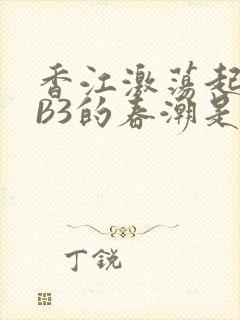 香江激荡起
B3的春潮是
丁锐